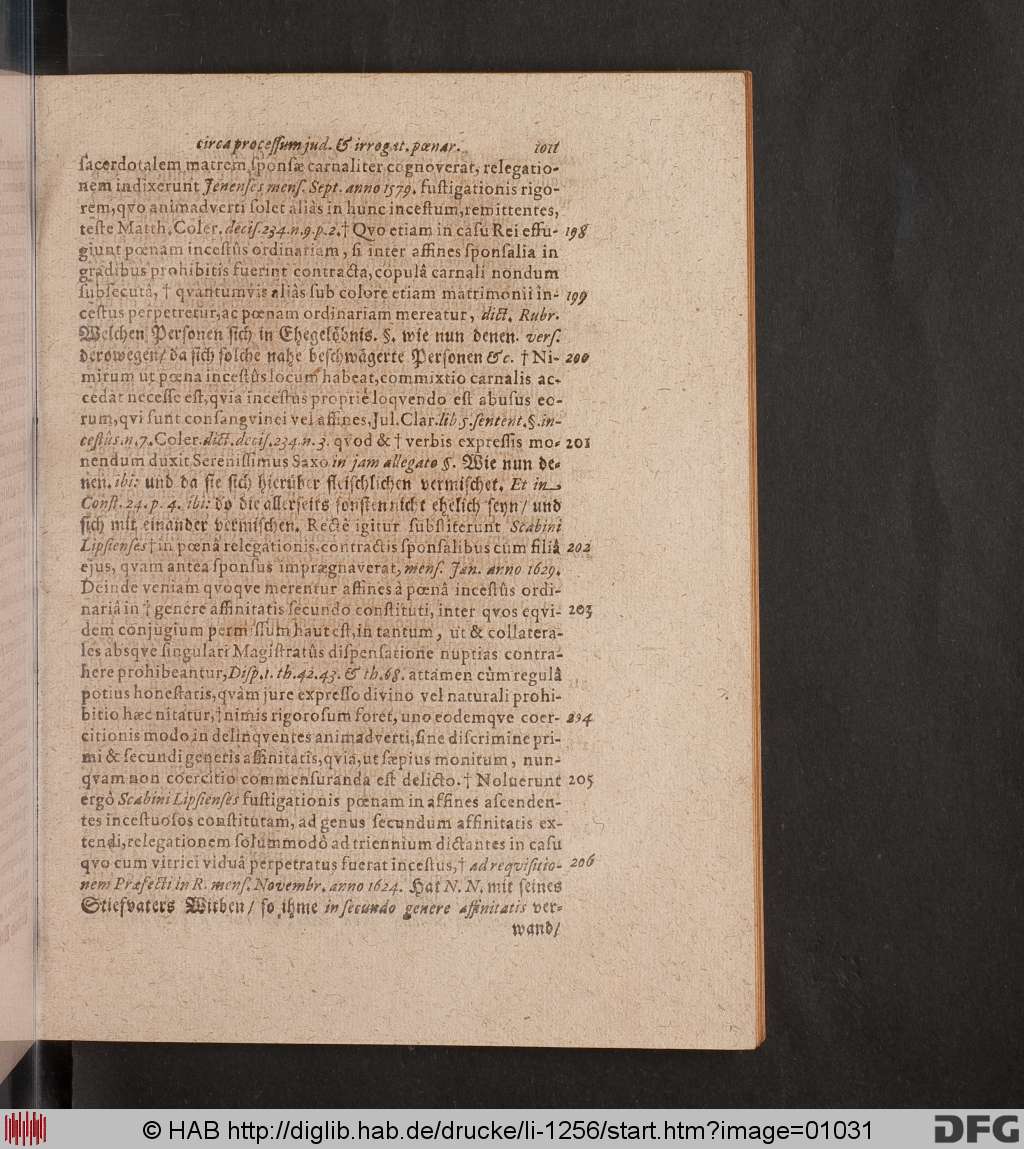 circa processum jud. & irrogat. pœnar. 1011
sacerdotalem matrem sponsæ carnaliter cognoverat, relegatio-
nem indixerunt Jenenses mens. Sept. anno 1579. fustigationis rigo-
rem, qvo animadverti solet aliàs in hunc incestum, remittentes,
teste Matth. Coler. decis. 234. n. 9. p. 2. † Qvo etiam in casu Rei effu- 198
giunt pœnam incestûs ordinariam, si inter affines sponsalia in
gradibus prohibitis fuerint contracta, copulâ carnali nondum
subsecutâ, † qvantumvis aliàs sub colore etiam matrimonii in- 199
cestus perpetretur, ac pœnam ordinariam mereatur, dict. Rubr.
Welchen Personen sich in Ehegelöbnis. §. wie nun denen. vers.
derowegen/ da sich solche nahe beschwägerte Personen &c. † Ni- 200
mirum ut pœna incestûs locum habeat, commixtio carnalis ac-
cedat necesse est, qvia incestus propriè loqvendo est abusus eo-
rum, qvi sunt consangvinei vel affines, Jul. Clar. lib 5. sentent. §. in-
cestus. n. 7. Coler. dict. decis. 234. n. 3. qvod & † verbis expressis mo- 201
nendum duxit Serenissimus Saxo in jam allegato §. Wie nun de-
nen. ibi: und da sie sich hierüber fleischlichen vermischet. Et in
Const. 24. p. 4. ibi: do die allerseits sonsten nicht ehelich seyn/ und
sich mit einander vermischen. Rectè igitur substiterunt Scabini
Lipsienses † in pœnâ relegationis, contractis sponsalibus cùm filiâ 202
ejus, qvam antea sponsus imprægnaverat, mens. Jan. anno 1629.
Deinde veniam qvoqve merentur affines à pœnâ incestûs ordi-
nariâ in † genere affinitatis secundo constituti, inter qvos eqvi- 203
dem conjugium permissum haut est, in tantum, ut & collatera-
les absqve singulari Magistratûs dispensatione nuptias contra-
here prohibeantur, Disp. 1. th. 42. 43. & th. 68. attamen cùm regulâ
potius honestatis, qvàm jure expresso divino vel naturali prohi-
bitio hæc nitatur, † nimis rigorosum foret, uno eodemqve coer- 294
citionis modo in delinqventes animadverti, sine discrimine pri-
mi & secundi generis affinitatis, qvia, ut sæpius monitum, nun-
qvam non coercitio commensuranda est delicto. † Noluerunt 205
ergò Scabini Lipsienses fustigationis pœnam in affines ascenden-
tes incestuosos constitutam, ad genus secundum affinitatis ex-
tendi, relegationem solummodò ad triennium dictantes in casu
qvo cum vitrici viduâ perpetratus fuerat incestus, † ad reqvisitio- 206
nem Præfecti in R. mens. Novembr. anno 1624. Hat N. N. mit seines
Stiefvaters Witben/ so ihme in secundo genere affinitatis ver-
wand/
© HAB http://diglib.hab.de/drucke/li-1256/start.htm?image=01031
DFG